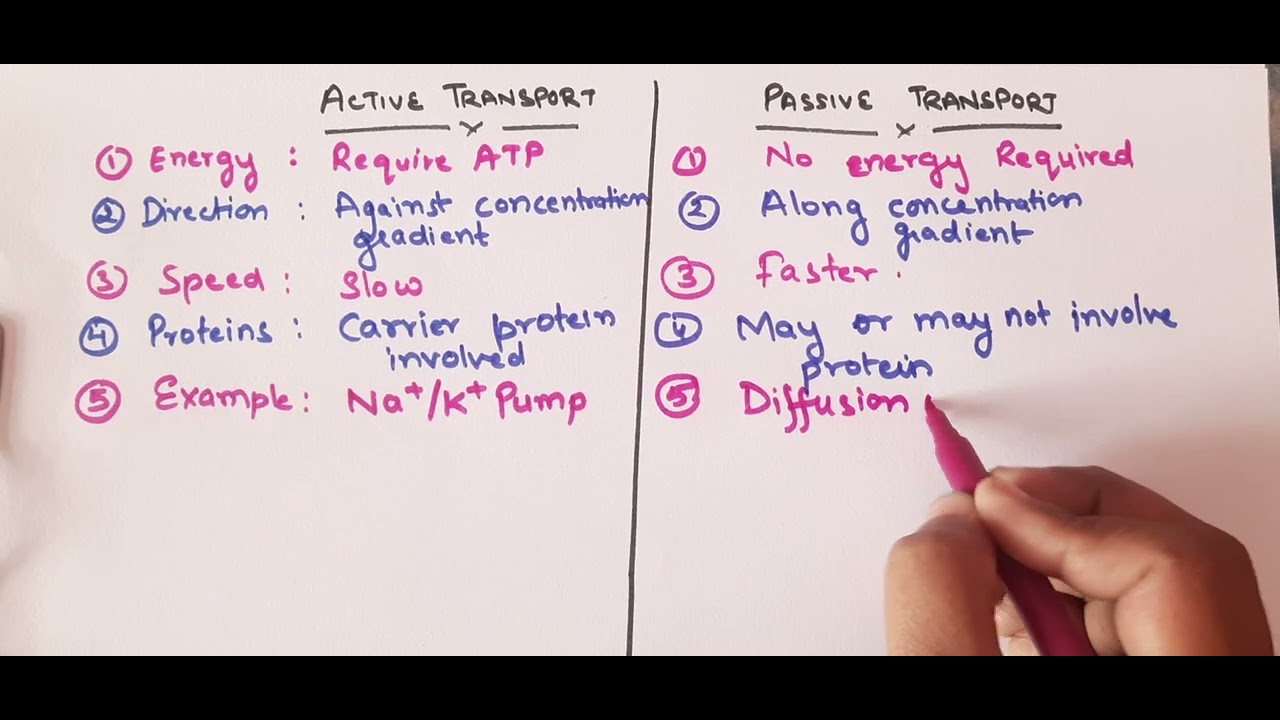 ACTIVE TRANSPORT
① Energy : Require ATP
② Direction : Against concentration
gradient
③ Speed : Slow
④ Proteins : Carrier protein
involved
⑤ Example : Na⁺/K⁺ Pump
PASSIVE TRANSPORT
① No energy Required
② Along concentration
gradient
③ Faster.
④ May or may not involve
protein
⑤ Diffusion